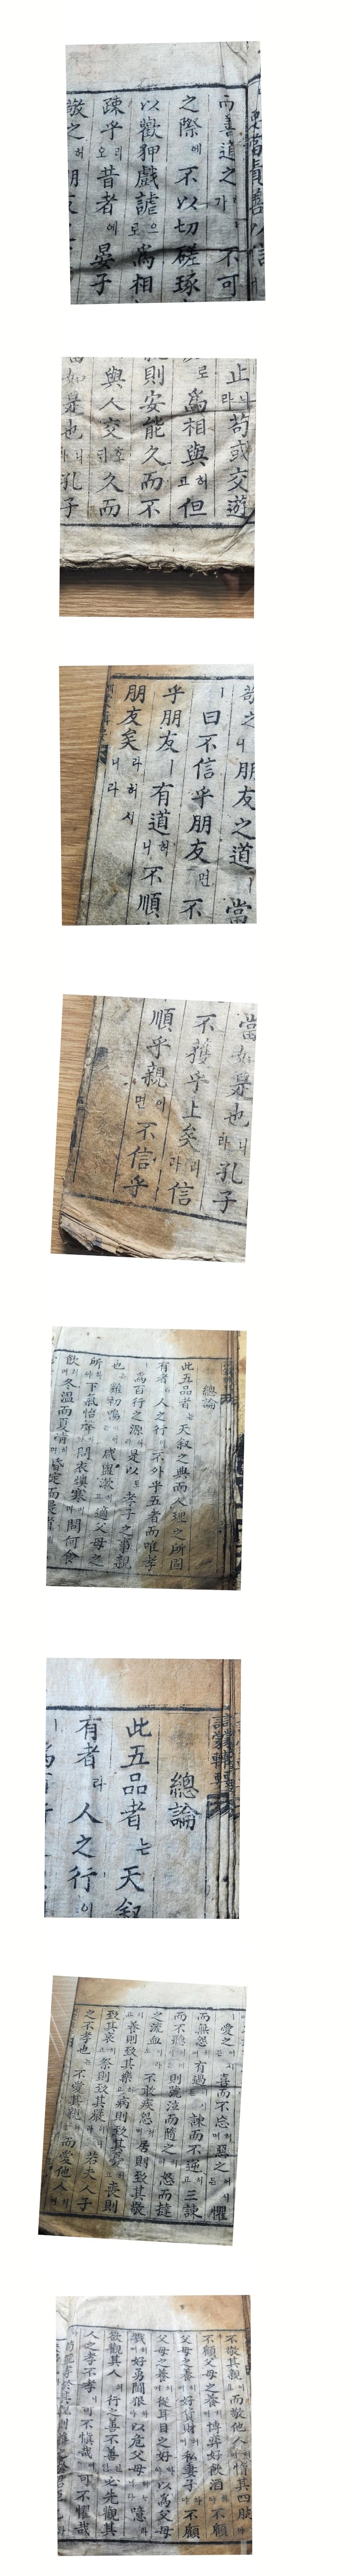 當責善以信
而善道之가 不可
之際에不以切磋琢
以歡狎戲謔으로爲相
疎乎오리昔者에晏子
敬之허 朋友
止니라苟或交遊
로爲相與허고但
則安能久而不
與人交호되久而
當如是也니라孔子
敬之니朋友之道ㅣ當
ㅣ曰不信乎朋友면不
乎朋友ㅣ有道허니不順
朋友矣라허시니라
當如是也니라孔子
不獲乎上矣리라信
順乎親이면不信乎
總論
此五品者는天敍之典而人理之所固
有者라人之行이不外乎五者而唯孝
ㅣ爲百行之源이라是以로孝子之事親
也는雞初鳴이어든咸盥漱고適父母之
所下氣怡聲問衣燠寒며問何食
飮며冬溫而夏凊며昏定而晨省
總論
此五品者는天敍
有者라人之行이
愛之喜而不忘며惡之懼
而無怨有過諫而不逆고三諫
而不聽則號泣而隨之怒而撻
之流血不敢疾怨居則致其敬
養則致其樂病則致其憂喪則
致其哀祭則致其嚴若夫人子
之不孝也는不愛其親而愛他人
不敬其親而敬他人惰其四肢
不顧父母之養博奕好飮酒不顧
父母之養好貨財私妻子不顧
父母之養從耳目之好以爲父母
戮好勇鬪狠以危父母噫라
欲觀其人行之善不善必先觀其
人之孝不孝可不愼哉며可不懼哉